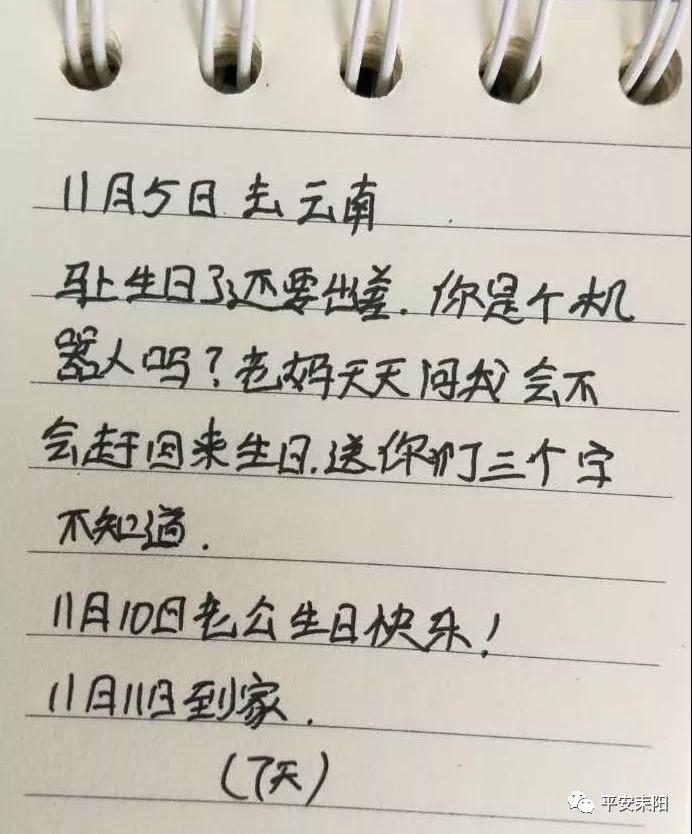 11月5日去云南
马上生日了还要出差.你是个机
器人吗?老妈天天问我会不
会赶回来生日.送你们三个字
不知道.
11月10日老公生日快乐!
11月11日到家.
(7天)
平安耒阳